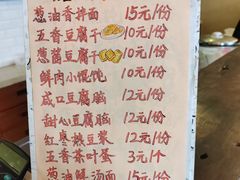 葱油香拌面 15元/份
五香豆腐干 10元/份
葱酱豆腐干 10元/份
鲜肉小馄饨 10元/份
咸口豆腐脑 12元/份
甜心豆腐脑 12元/份
红枣糯豆浆 12元/份
五香茶叶蛋 3元/个
葱油鲜汤面 15元/份